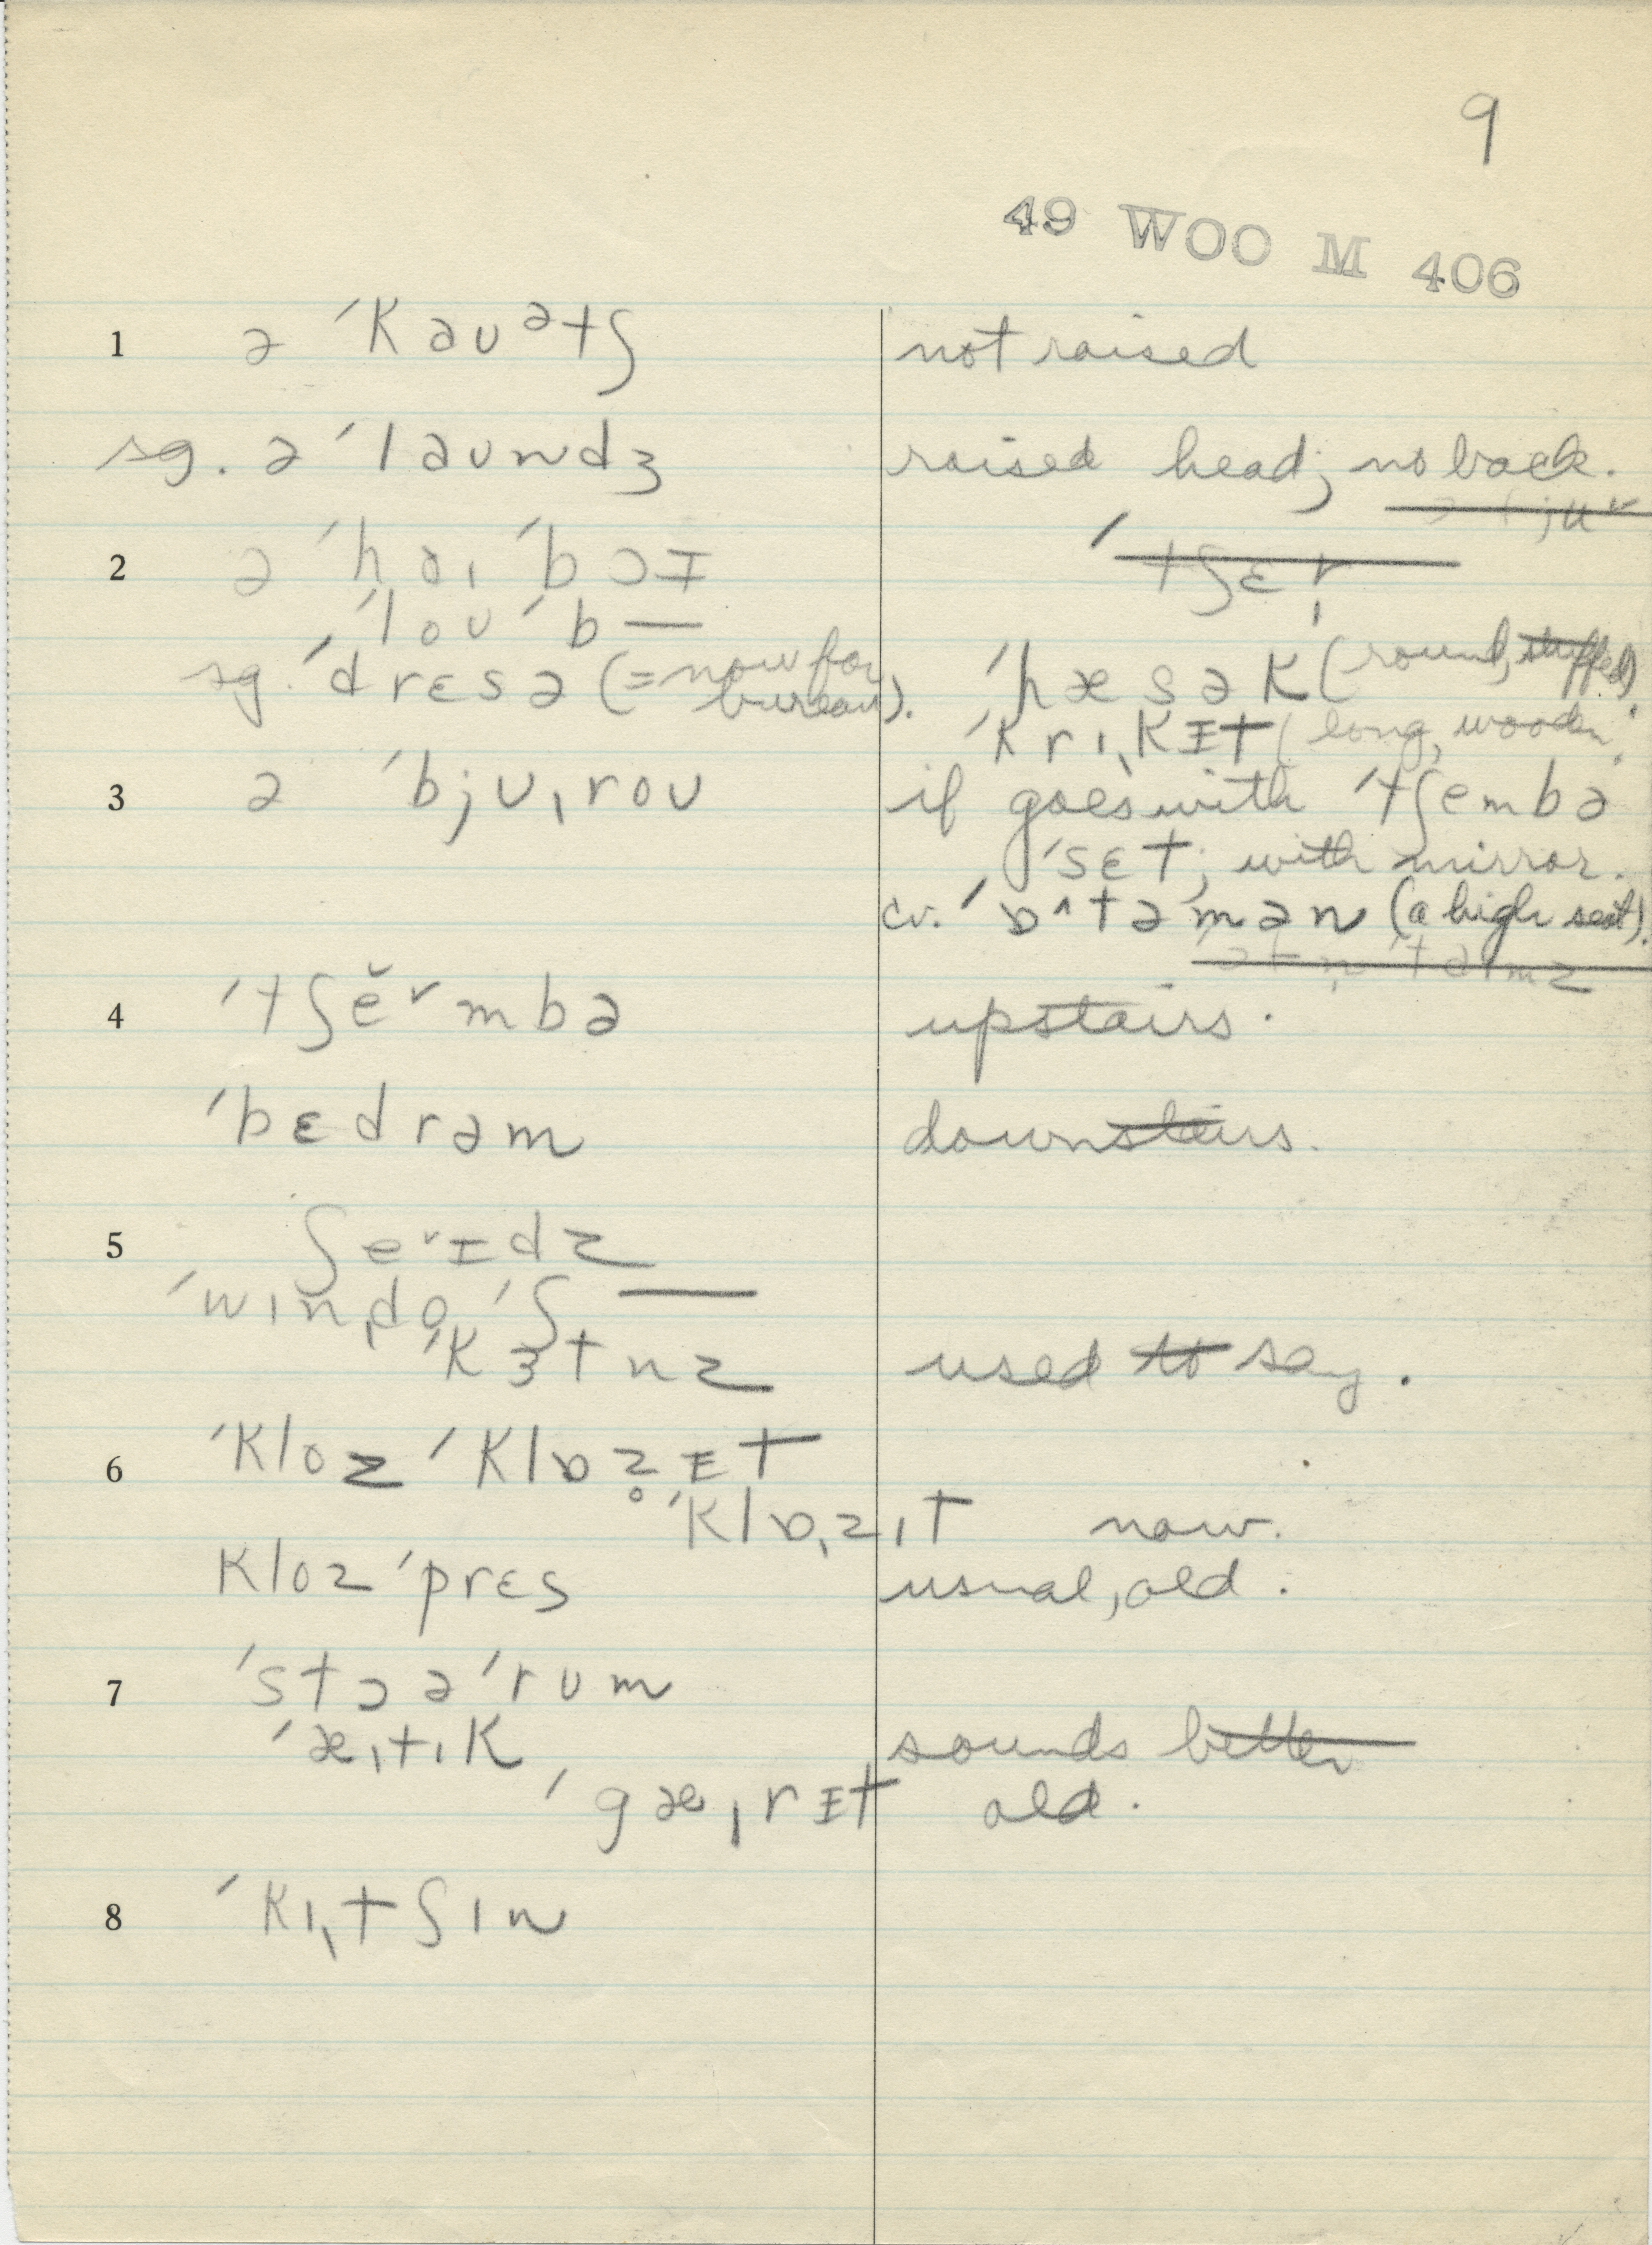 9
49 WOO M 406
1 ə ˈkauᵊtʃ not raised
sg. ə ˈlaundʒ raised head; no back.
2 ə ˈhaɪ ˈbɔɪ ˈtʃɛr
ˈloʊ ˈb—
sg. ˈdrɛsə (= now for bureau). ˈhæsək (round, stuffed).
ˈkrɪ,kɪt (long, wooden.
3 ə ˈbjʊ,roʊ if goes with ˈtʃembə
ˈsɛt; with mirror.
cv. ˈɒ^təmən (a high seat).
4 ˈtʃĕ˅mbə upstairs.
ˈbɛdrəm downstairs.
5 ʃe˅ɪdz
ˈwɪn,do, ˈʃ—
ˈkɜtnz used to say.
6 ˈkloz ˈklɒz̥ɪt
ˈklɒ,zɪt now.
kloz ˈprɛs usual, old.
7 ˈstɔə ˈrʊm
ˈæ,tɪk sounds better
ˈgæ,rɪt old.
8 ˈkɪ,tʃɪn